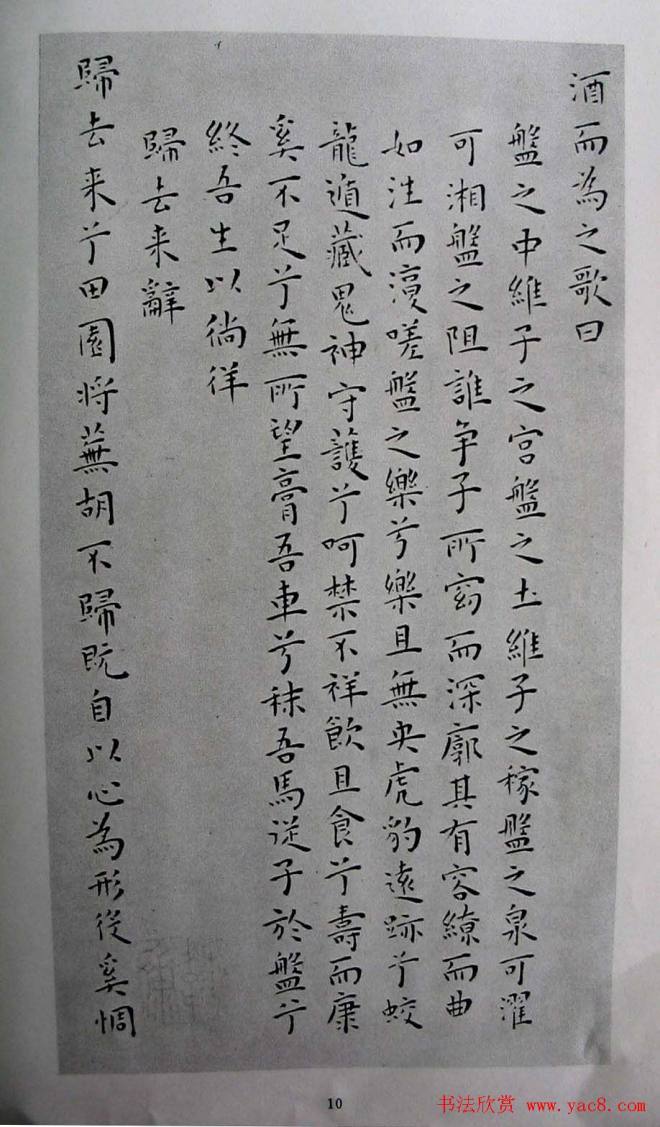 酒而為之歌曰
盤之中維子之宮盤之土維子之稼盤之泉可濯
可湘盤之阻誰争子所窈而深廓其有容繚而曲
如往而復嗟盤之樂兮樂且無央虎豹遠跡兮蛟
龍遁藏鬼神守護兮呵禁不祥飲且食兮壽而康
奚不足兮無所望膏吾車兮秣吾馬從子於盤兮
終吾生以徜徉
歸去来辭
歸去来兮田園将蕪胡不歸既自以心為形役奚惆
10
书法欣赏 www.yac8.com